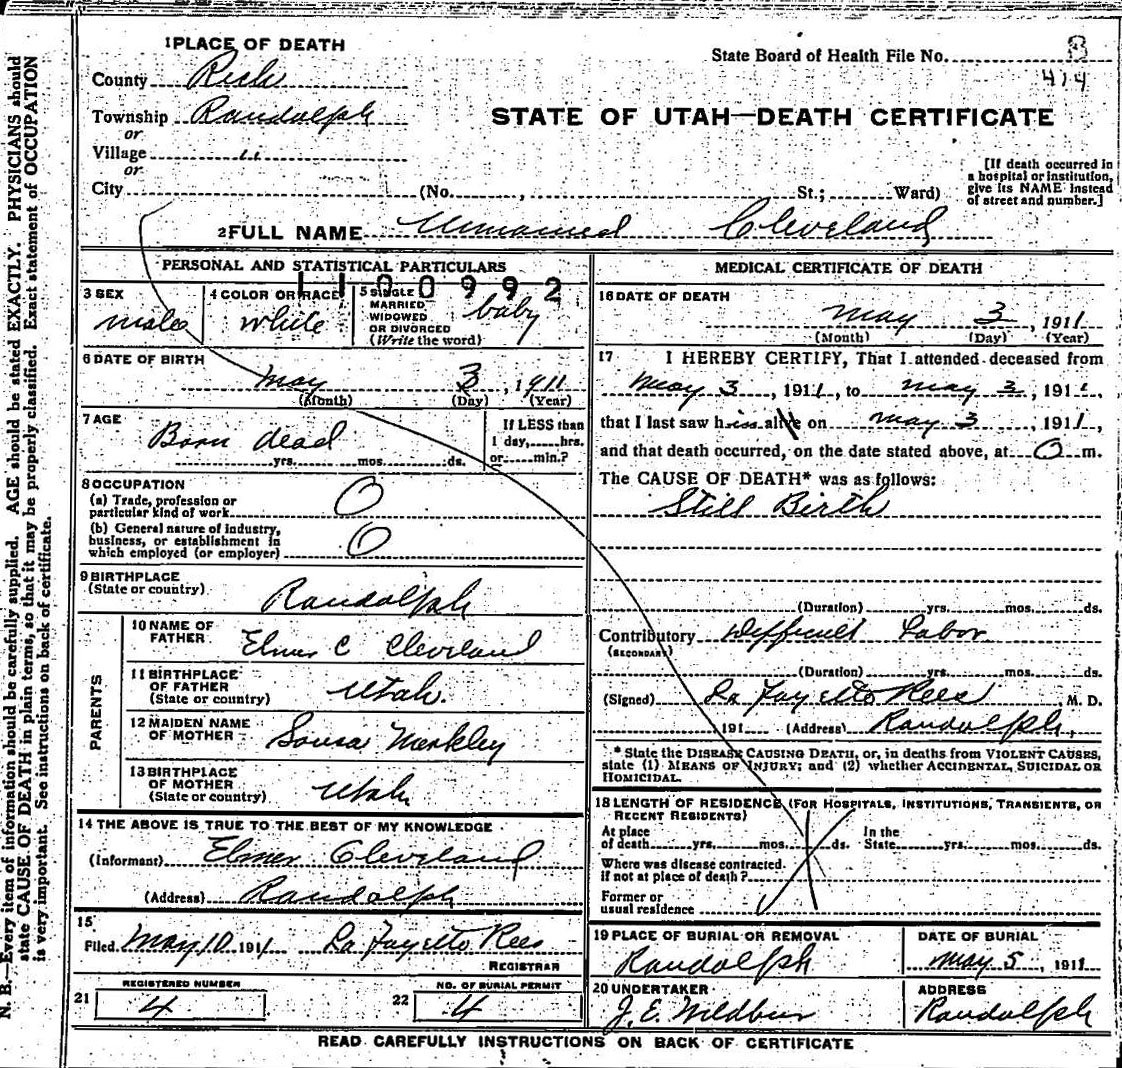 N. B.—Every item of information should be carefully supplied. AGE should be stated EXACTLY. PHYSICIANS should
state CAUSE OF DEATH in plain terms, so that it may be properly classified. Exact statement of OCCUPATION
is very important. See instructions on back of certificate.
1 PLACE OF DEATH
State Board of Health File No. 8
414
County Rich
Township Randolph
or
Village "
or
City (No. , St.; Ward)
STATE OF UTAH—DEATH CERTIFICATE
[If death occurred in
a hospital or institution,
give its NAME instead
of street and number.]
2 FULL NAME Unnamed Cleveland
PERSONAL AND STATISTICAL PARTICULARS
1100992
3 SEX
male
4 COLOR OR RACE
white
5 SINGLE
MARRIED
WIDOWED
OR DIVORCED
(Write the word)
baby
6 DATE OF BIRTH
May 3, 1911
(Month) (Day) (Year)
7 AGE
Born dead
yrs. mos. ds.
If LESS than
1 day, hrs.
or min.?
8 OCCUPATION
(a) Trade, profession or
particular kind of work O
(b) General nature of industry,
business, or establishment in
which employed (or employer) O
9 BIRTHPLACE
(State or country)
Randolph
PARENTS
10 NAME OF
FATHER
Elmer C Cleveland
11 BIRTHPLACE
OF FATHER
(State or country)
Utah.
12 MAIDEN NAME
OF MOTHER
Markley
13 BIRTHPLACE
OF MOTHER
(State or country)
Utah
14 THE ABOVE IS TRUE TO THE BEST OF MY KNOWLEDGE
(Informant) Elmer Cleveland
(Address) Randolph
15
Filed May 10 1911 La Fayette Rees
REGISTRAR
21 REGISTERED NUMBER
4
22 NO. OF BURIAL PERMIT
4
MEDICAL CERTIFICATE OF DEATH
16 DATE OF DEATH
May 3, 1911
(Month) (Day) (Year)
17 I HEREBY CERTIFY, That I attended deceased from
May 3, 1911, to May 3, 1911,
that I last saw h alive on May 3, 1911,
and that death occurred, on the date stated above, at O m.
The CAUSE OF DEATH* was as follows:
Still Birth
(Duration) yrs. mos. ds.
Contributory Difficult Labor
(SECONDARY)
(Duration) yrs. mos. ds.
(Signed) La Fayette Rees, M. D.
191 (Address) Randolph,
* State the DISEASE CAUSING DEATH, or, in deaths from VIOLENT CAUSES,
state (1) MEANS OF INJURY; and (2) whether ACCIDENTAL, SUICIDAL OR
HOMICIDAL.
18 LENGTH OF RESIDENCE (FOR HOSPITALS, INSTITUTIONS, TRANSIENTS, OR
RECENT RESIDENTS)
At place
of death yrs. mos. ds.
In the
State yrs. mos. ds.
Where was disease contracted.
if not at place of death?
Former or
usual residence
19 PLACE OF BURIAL OR REMOVAL
Randolph
DATE OF BURIAL
May 5, 1911
20 UNDERTAKER
J. E. Wildbur
ADDRESS
Randolph
READ CAREFULLY INSTRUCTIONS ON BACK OF CERTIFICATE